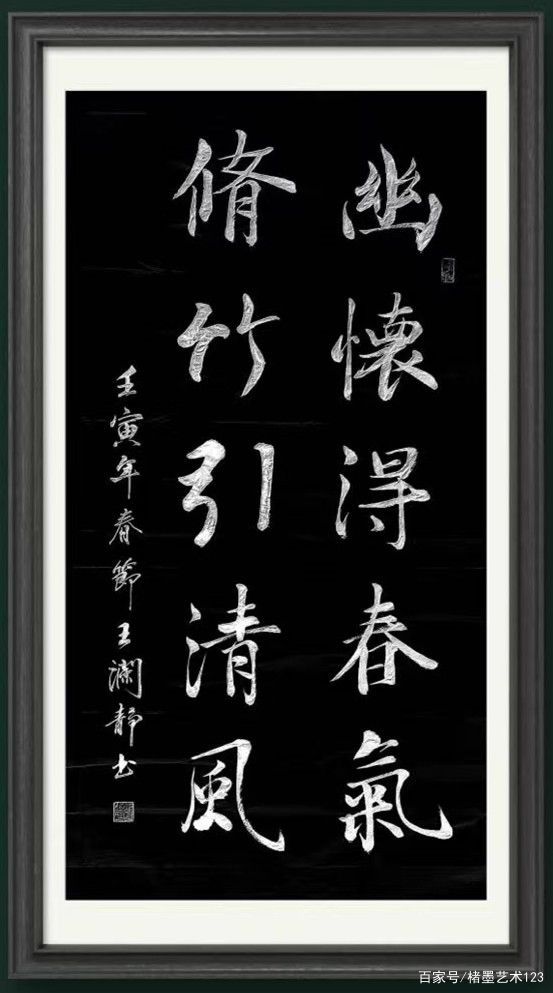 幽懷得春氣
脩竹引清風
壬寅年春節王瀾靜书
百家号/楮墨艺术123